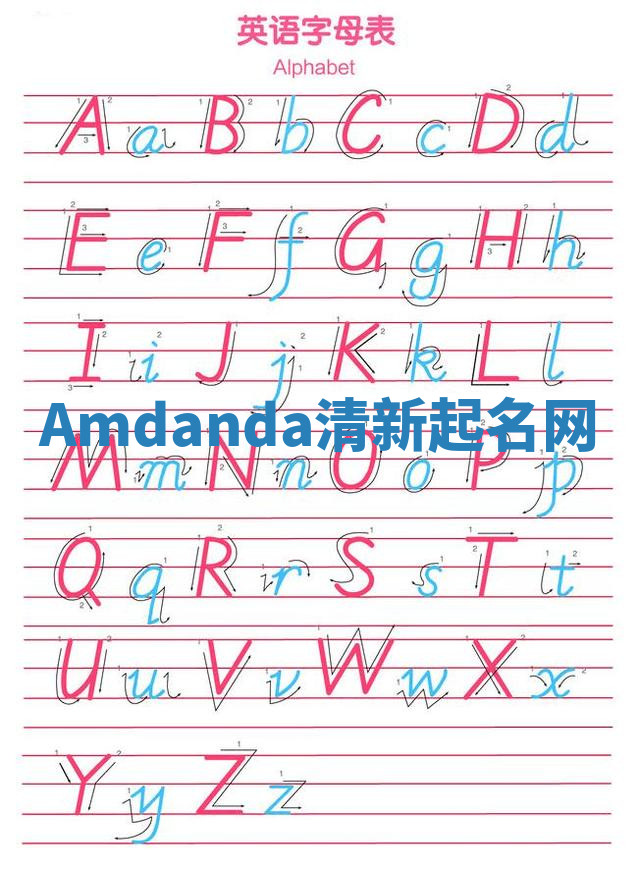 英语字母表
Alphabet
A a B b C c D d
E e F f G g H h
I i J j K k L l
Amdanda清新起名网
M m N n O o P p
Q q R r S s T t
U u V v W w X x
Y y Z z